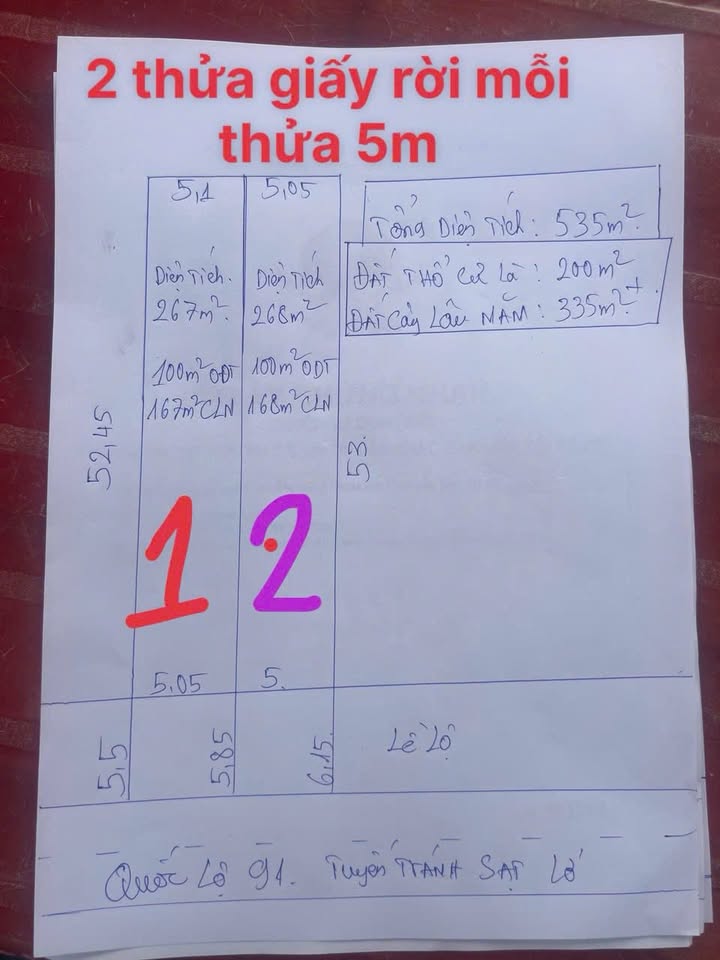 2 thửa giấy rời mỗi
thửa 5m
5,1
5,05
Tổng Diện Tích: 535m²
ĐẤT THỔ Cư Là: 200m²
ĐẤT Cây Lâu NĂM: 335m²
Diện Tích
267m²
Diện Tích
268m²
100m² ODT
167m² CLN
100m² ODT
168m² CLN
52,45
53
1
2
5,05
5
5,5
5,85
6,15
Lề Lộ
Quốc Lộ 91. Tuyến TRÁNH SẠT Lở